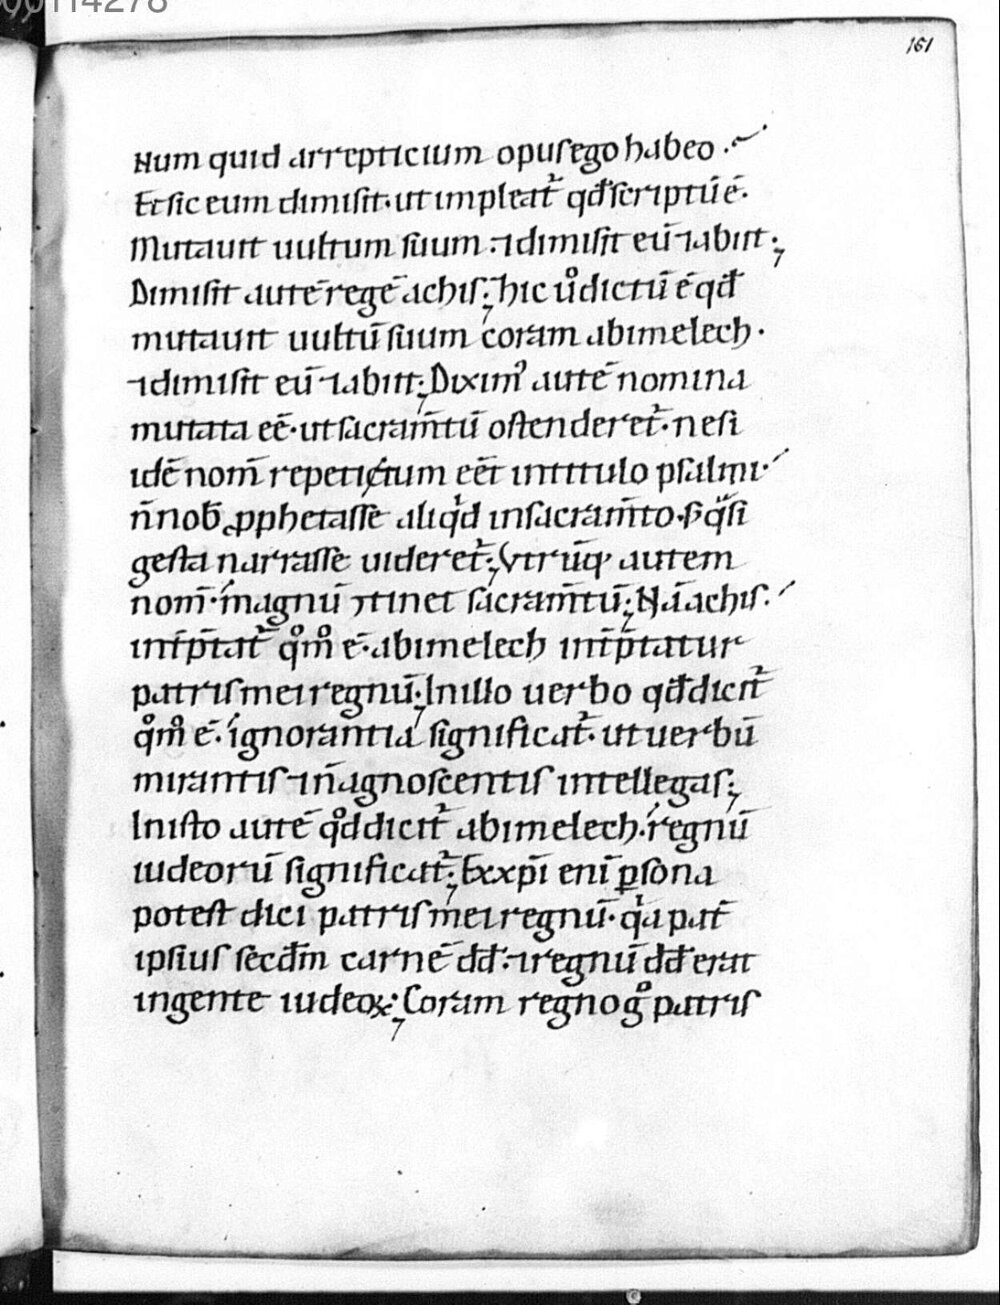 00114278
161
Num quid arrepticium opus ego habeo .
Et sic eum dimisit· ut impleat᷑ qđ scriptū ē·
Mutauit uultum suum · ⁊ dimisit eū ⁊ abiit ;
Dimisit autē regē achis ; hic ů dictū ē qđ
mutauit uultū suum coram abimelech ·
⁊ dimisit eū ⁊ abiit ; Diximꝰ autē nomina
mutata eē· ut sacram̄tū ostenderet᷑· ne si
idē nom̄ repetitum eēt in titulo psalmi·
n̄ nob̄ ꝓphetasse aliqͥd in sacram̄to· s; qᵃsi
gesta narrasse uideret᷑ ; Vtrūq; autem
nom̄· magnū ꝑtinet sacram̄tū ; Nā achis·
int̄p̄tat᷑ qͦmͦ ē· abimelech int̄p̄tatur
patris mei regnū ; In illo uerbo qđ dicit᷑
qͦmͦ ē· ignorantia significat᷑· ut uerbū
mirantis ⁊ n̄ agnoscentis intellegas ;
In isto autē qͦd dicit᷑ abimelech· regnū
iudeorū significat᷑ ; Ex xp̄i enī ꝑsona
potest dici patris mei regnū· qͥa pat̄
ipsius secđm carnē dđ· ⁊ regnū dđ erat
in gente iudeoꝝ ; Coram regno gͦ patris